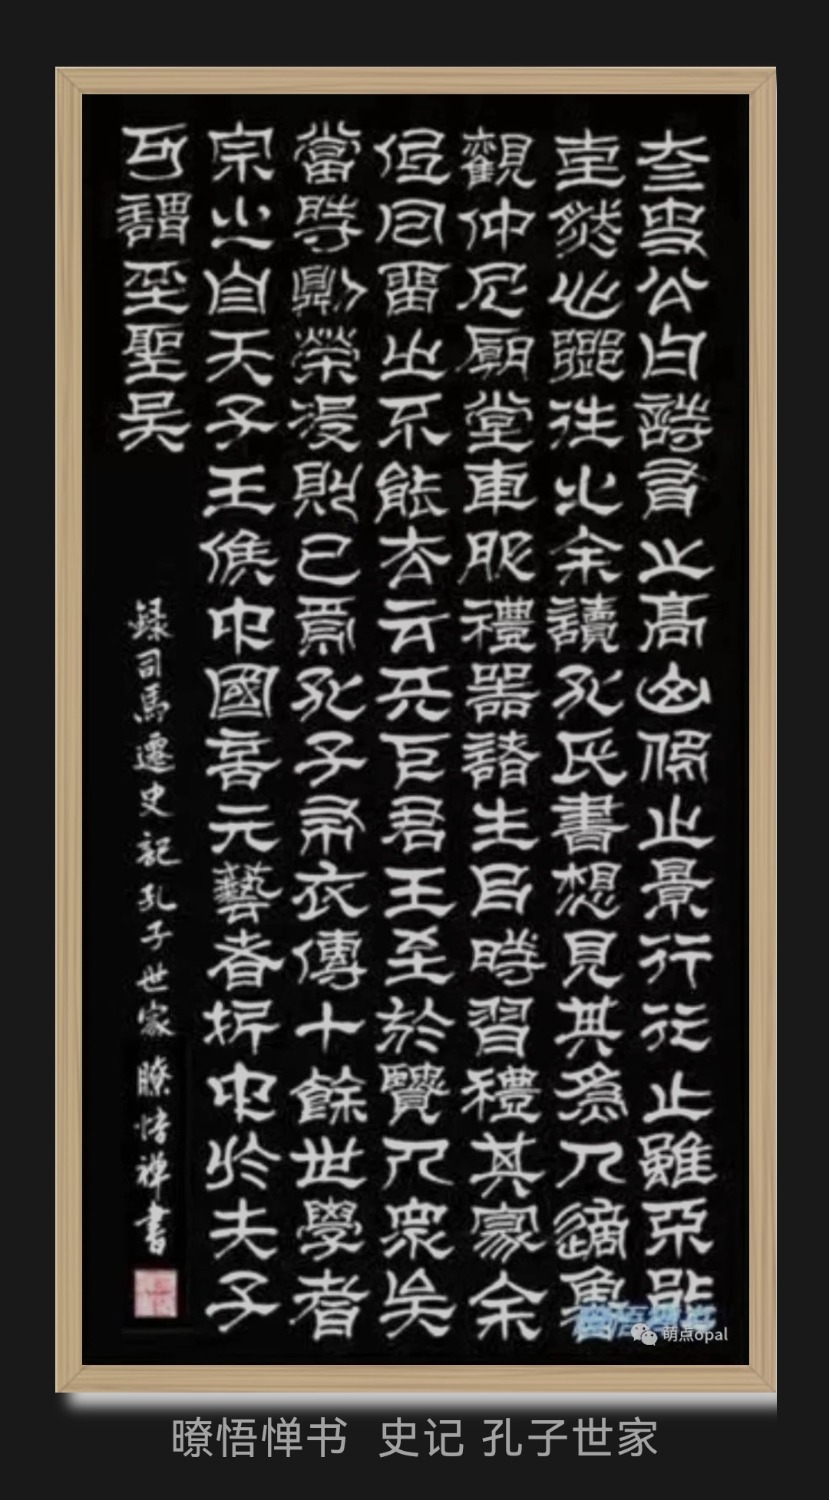 太史公曰詩有之高山仰止景行行止雖不能
至然心鄉往之余讀孔氏書想見其為人適魯
觀仲尼廟堂車服禮器諸生以時習禮其家余
低回留之不能去云天下君王至於賢人眾矣
當時則榮沒則已焉孔子布衣傳十餘世學者
宗之自天子王侯中國言六藝者折中於夫子
可謂至聖矣
錄司馬遷史記孔子世家 暸悟禅書
萌点opal
暸悟惮书 史记 孔子世家